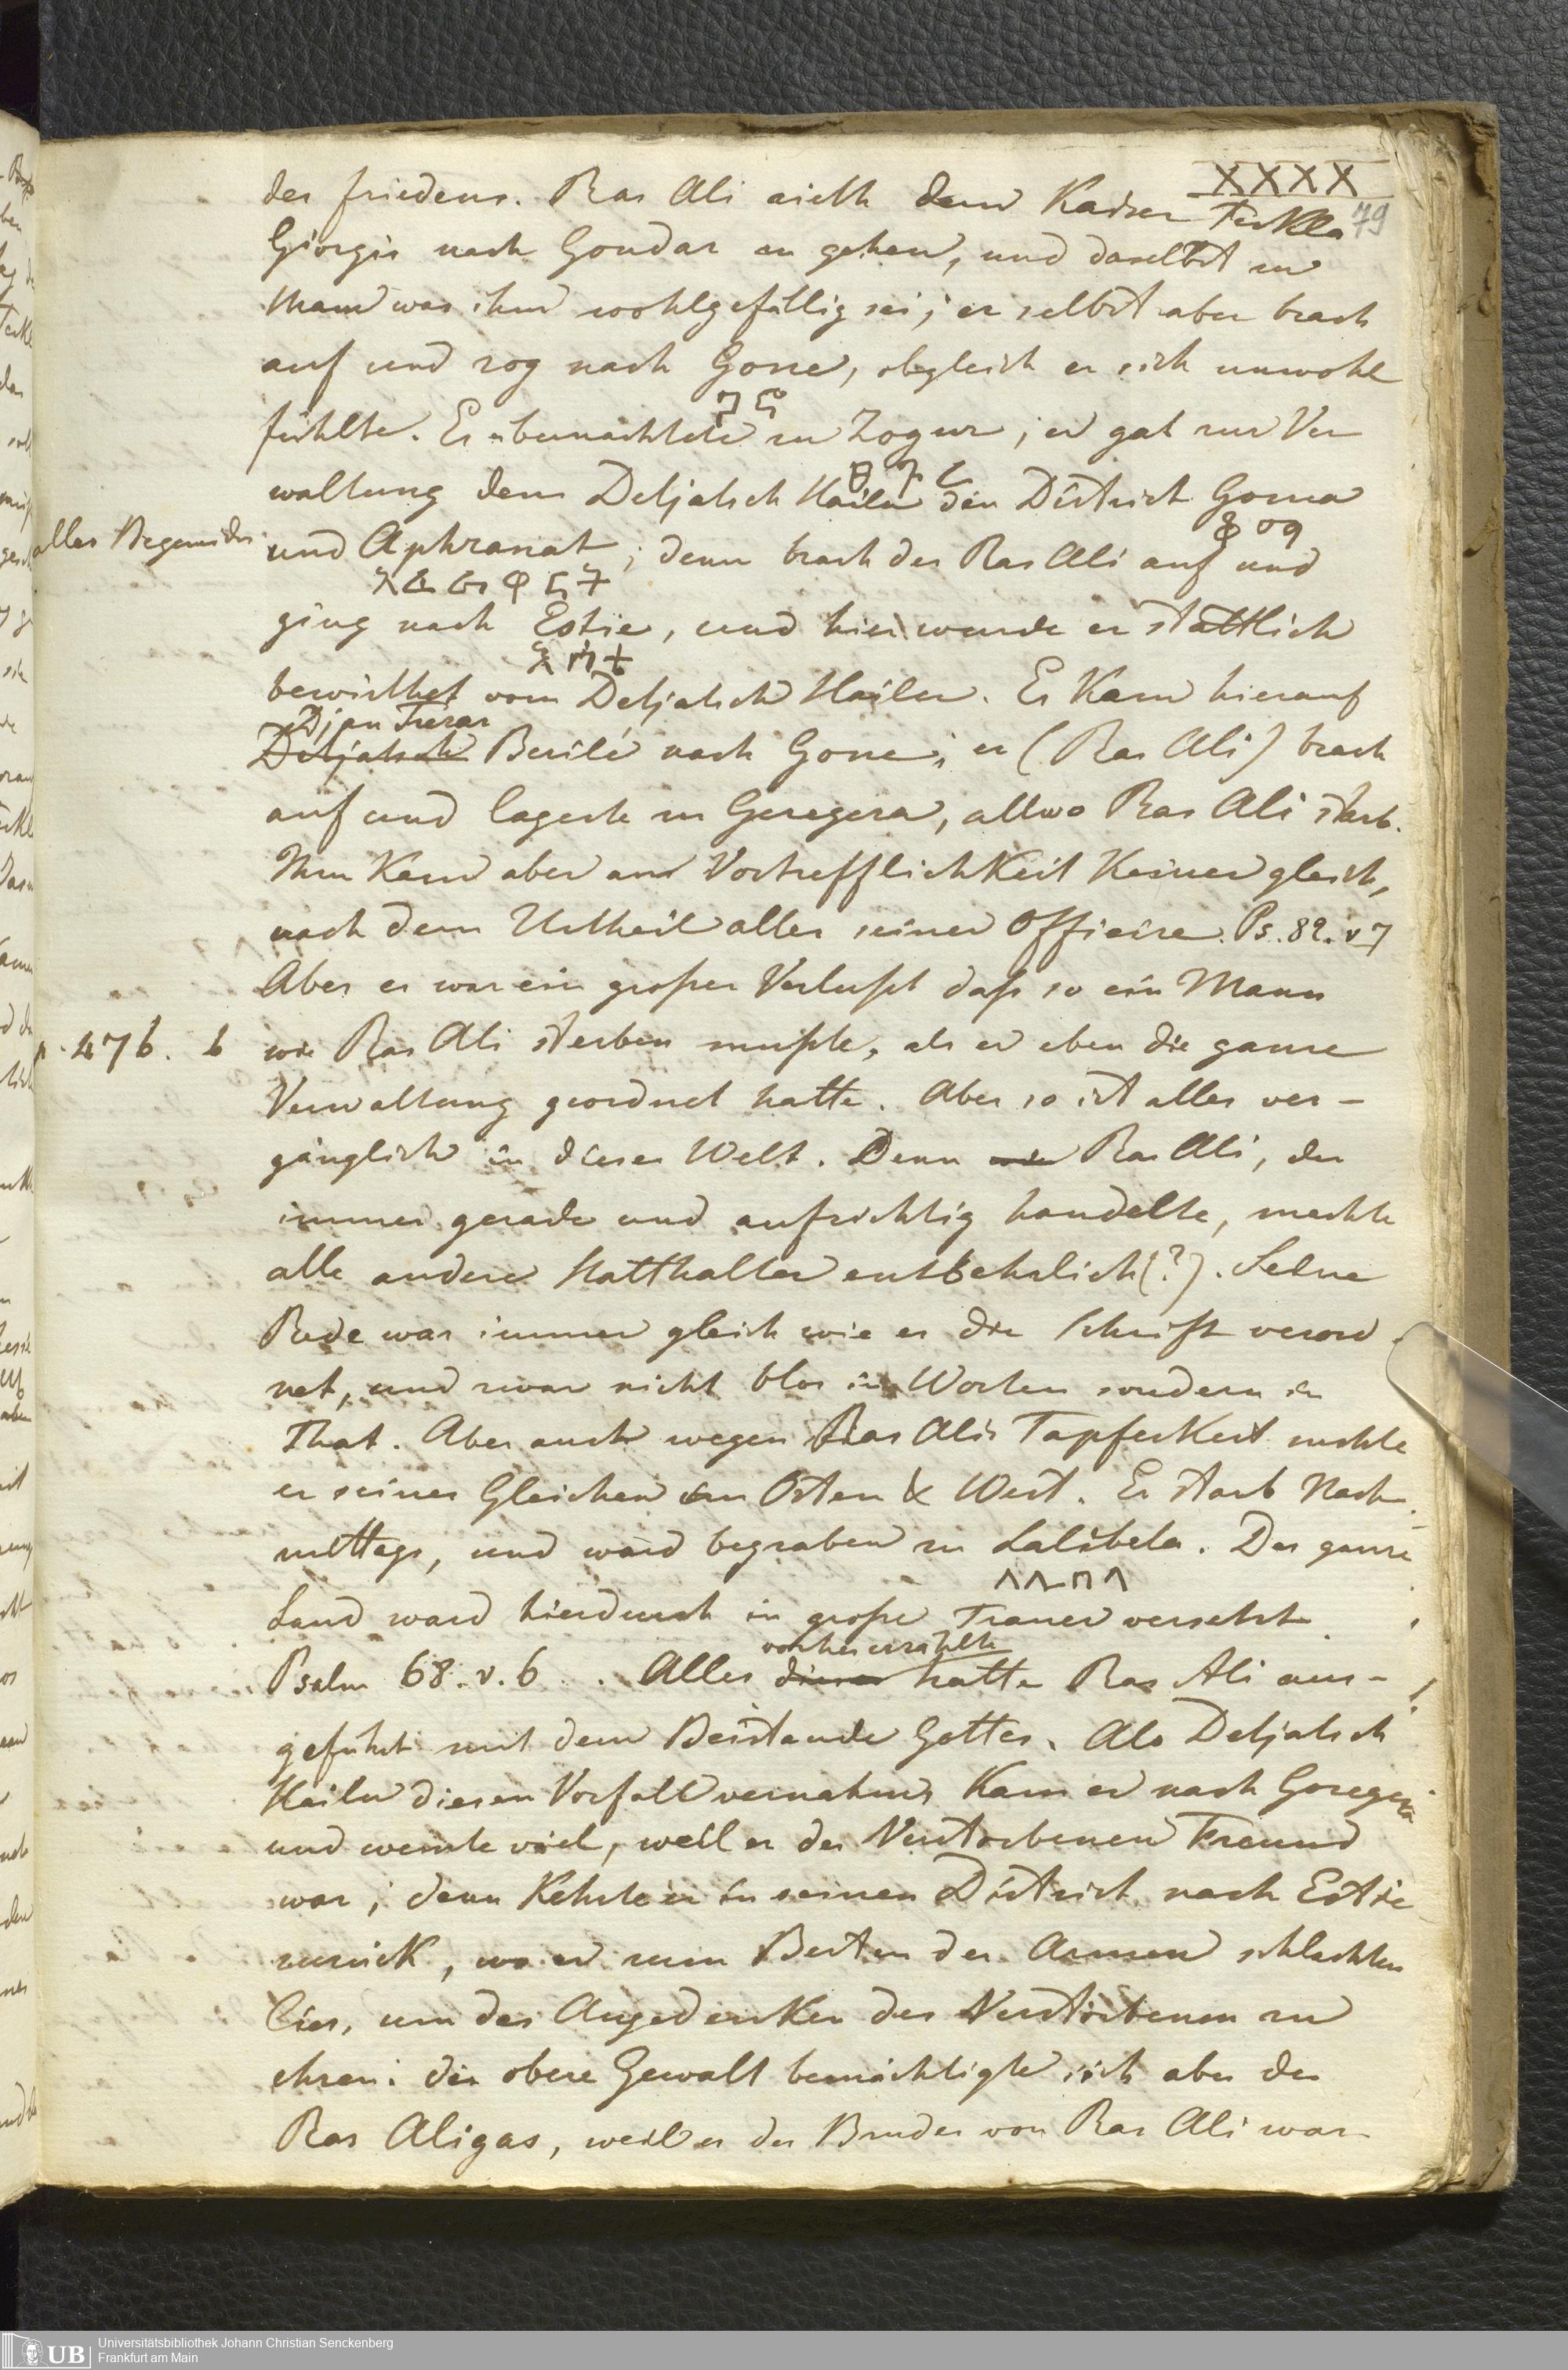 XXXX
79
des friedens. Ras Ali rieth dem Kaiser Tekla
Giorgis nach Gondar zu gehen, und daselbst zu
thun was ihm wohlgefällig sei; er selbst aber brach
auf und zog nach Gone, obgleich er sich unwohl
ጎኔ
fühlte. Er übernachtete in Zogur; er gab zur Ver
waltung dem Detjatsch Hailu den District Goma
alles Begemider
und Aphranat; denn brach der Ras Ali auf und
ging nach Estie, und hier wurde er stattlich
እስቴ
bewirthet vom Detjatsch Hailu. Es kam hierauf
Djan Tserar
Detjatsch Berilé nach Gone; er (Ras Ali) brach
auf und lagerte in Geregera, allwo Ras Ali starb.
Ihm kam aber an Vortrefflichkeit Keiner gleich,
nach dem Urtheil aller seiner Officire. Ps. 82. v 7
Aber es war ein großer Verlust daß so ein Mann
p. 476. b
wie Ras Ali sterben mußte, als er eben die ganze
Verwaltung geordnet hatte. Aber so ist alles ver-
gänglich in dieser Welt. Denn Ras Ali, der
immer gerade und aufrichtig handelte, machte
alle andere Statthalter entbehrlich(?). Seine
Rede war immer gleich wie es die Schrift verord-
net, und zwar nicht blos in Worten sondern in
That. Aber auch wegen Ras Alis Tapferkeit suchte
er seines Gleichen in Osten & West. Er starb Nach-
mittags, und ward begraben zu Lalibela. Das ganze
ላሊበላ
Land ward hierdurch in große Trauer versetzt
Psalm 68. v. 6. Alles dieses hatte Ras Ali aus-
vorher erzählte
geführt mit dem Beistande Gottes. Als Detjatsch
Hailu diesen Vorfall vernahm, kam er nach Geregera
und weinte viel, weil er des Verstorbenen Freund
war; dann kehrte er in seinen District nach Estie
zurück, wo er zum Besten der Armen schlachten
lies, um das Angedenken des Verstorbenen zu
ehren. die obere Gewalt bemächtigte sich aber der
Ras Aligas, weil er der Bruder von Ras Ali war
UB Universitätsbibliothek Johann Christian Senckenberg
Frankfurt am Main